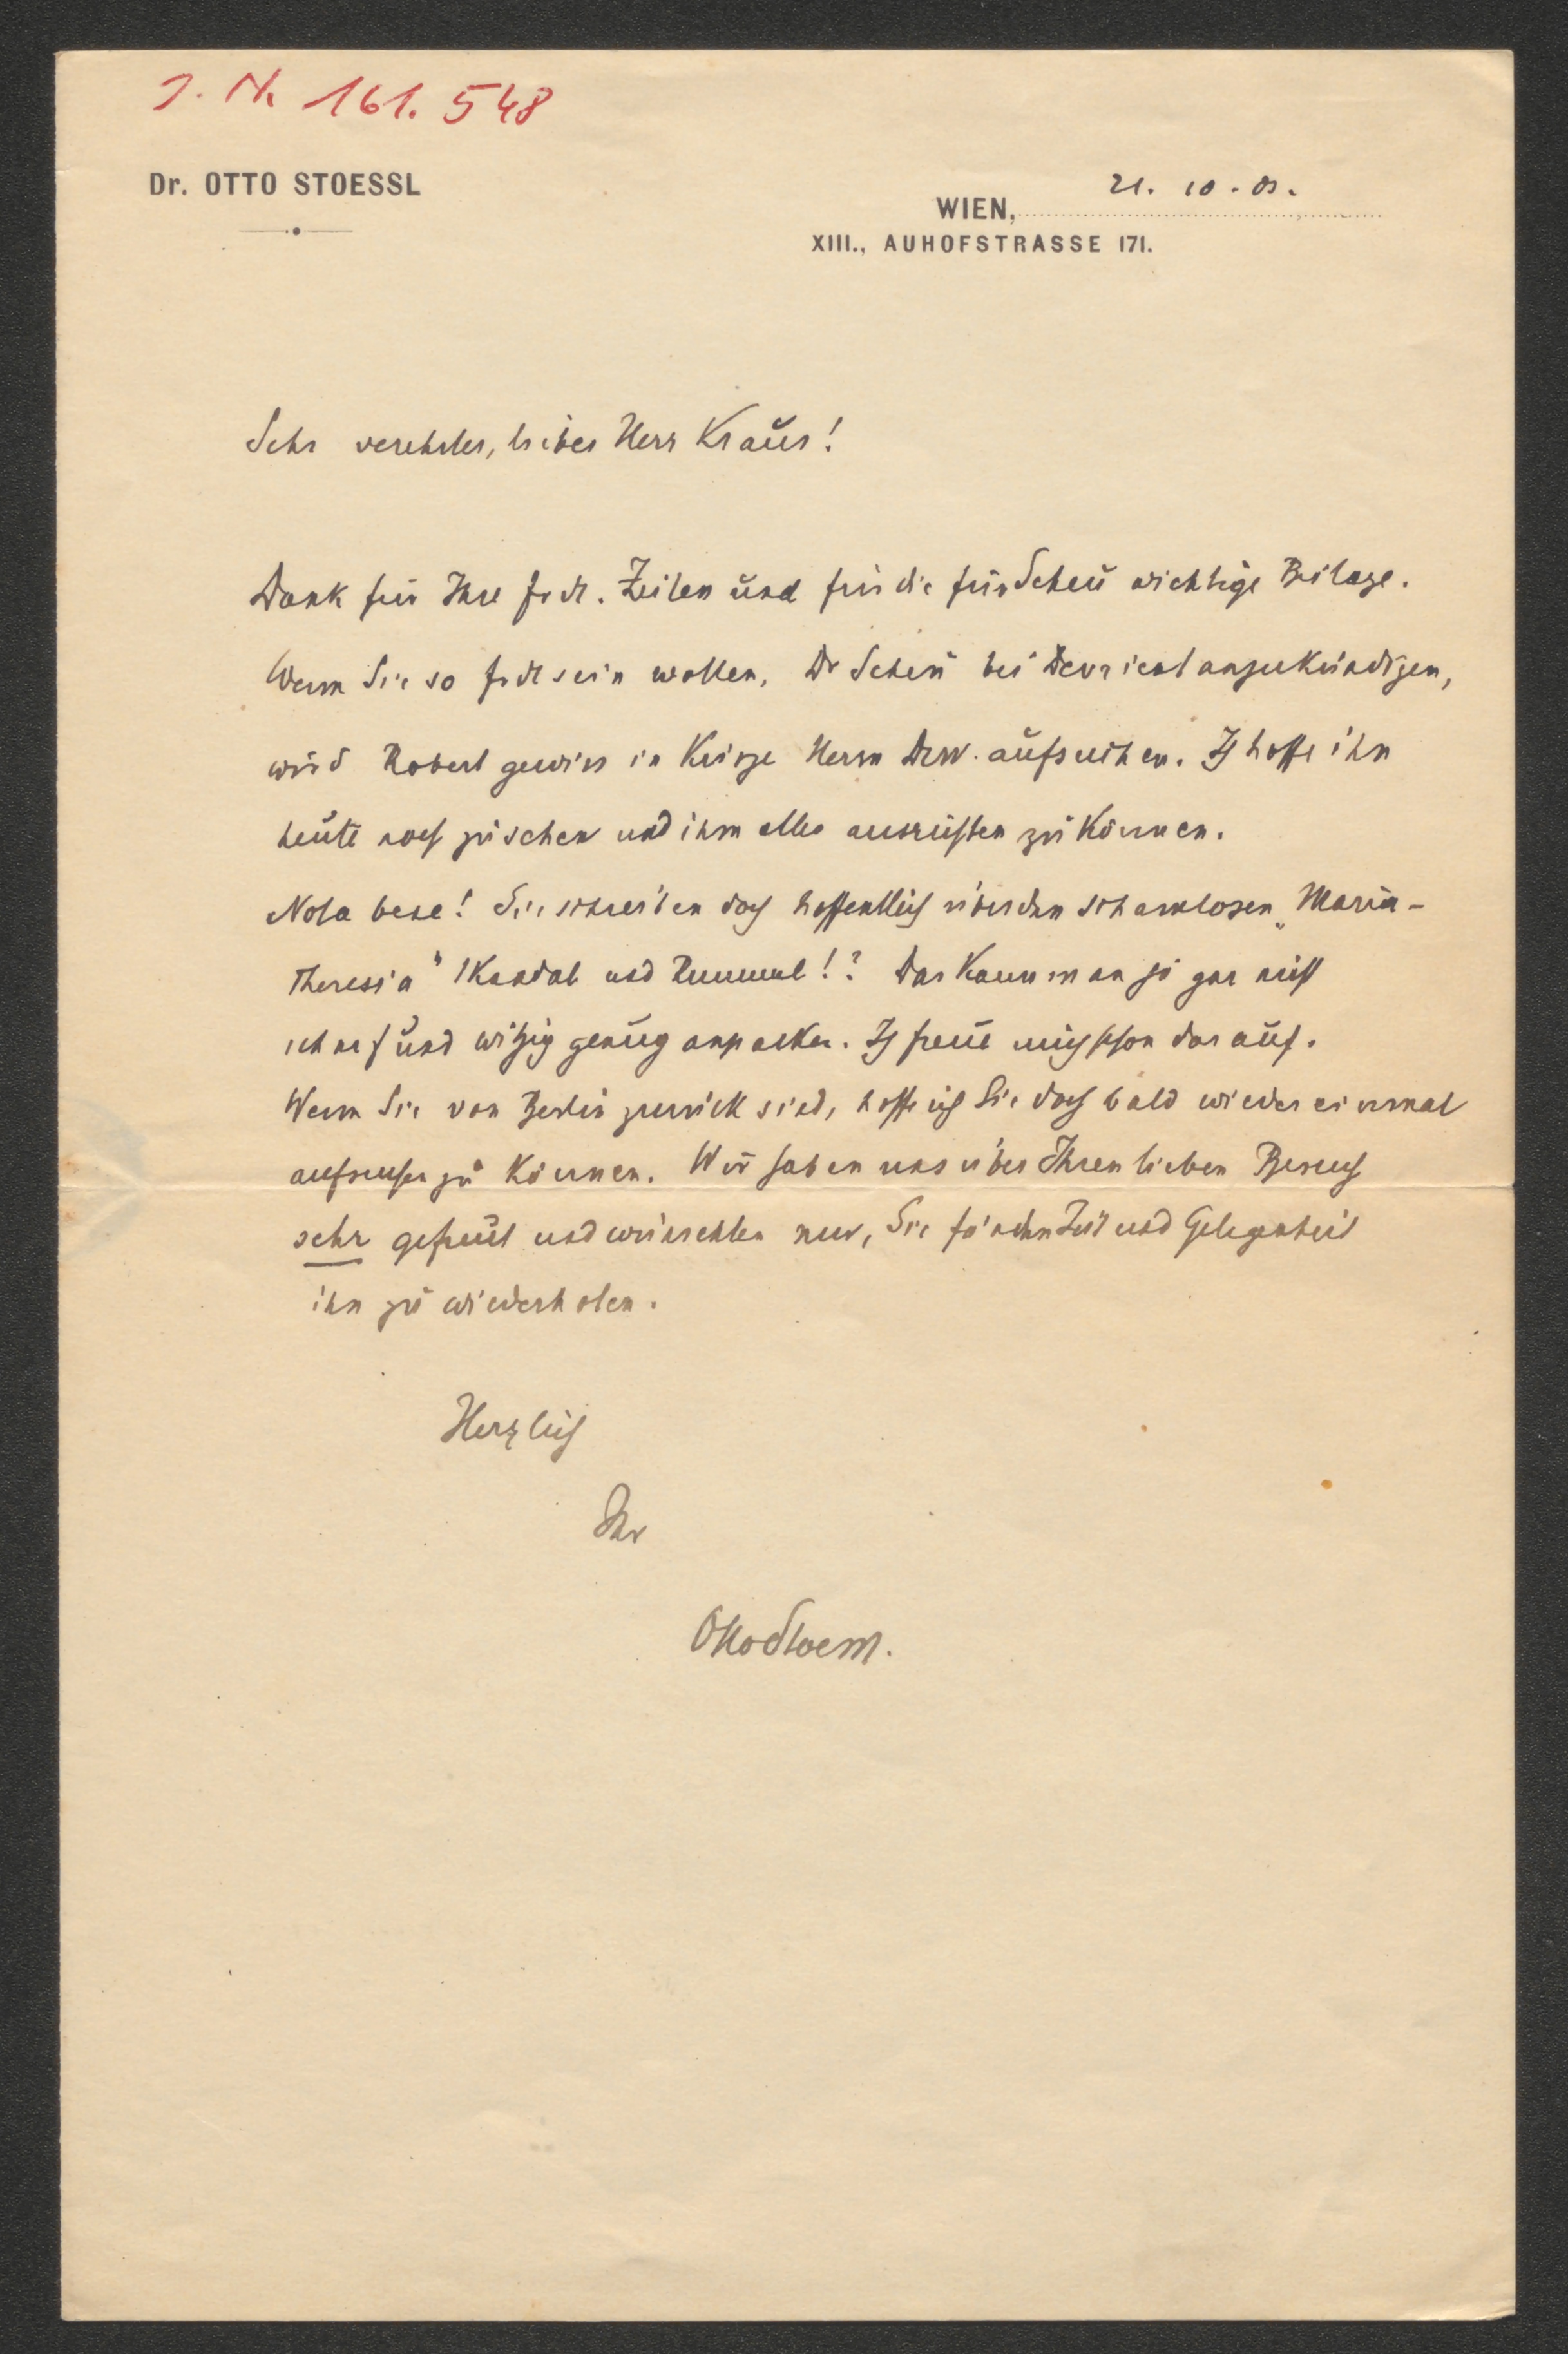 J. N. 161.548
Dr. OTTO STOESSL
WIEN, 21. 10. 
XIII., AUHOFSTRASSE 171.
Sehr verehrter, lieber Herr Kraus!
Dank für Ihre frdl. Zeilen und für die für Scheu wichtige Beilage.
Wenn Sie so frdl sein wollen, Dr Scheu bei Devrient anzukündigen,
wird Robert gewiss in Kürze Herrn Devr. aufsuchen. Ich hoffe ihn
heute noch zu sehen und ihm alles ausrichten zu können.
Nota bene! Sie schreiben doch hoffentlich über den schamlosen „Maria-
Theresia" Skandal und Rummel!? Das kann man ja gar nicht
scharf und witzig genug anpacken. Ich freue mich schon darauf.
Wenn Sie von Berlin zurück sind, hoffe ich Sie doch bald wieder einmal
aufsuchen zu können. Wir haben uns über Ihren lieben Besuch
sehr gefreut und wünschten nur, Sie fänden Zeit und Gelegenheit
ihn zu wiederholen.
Herzlich
Ihr
Otto Stoessl.